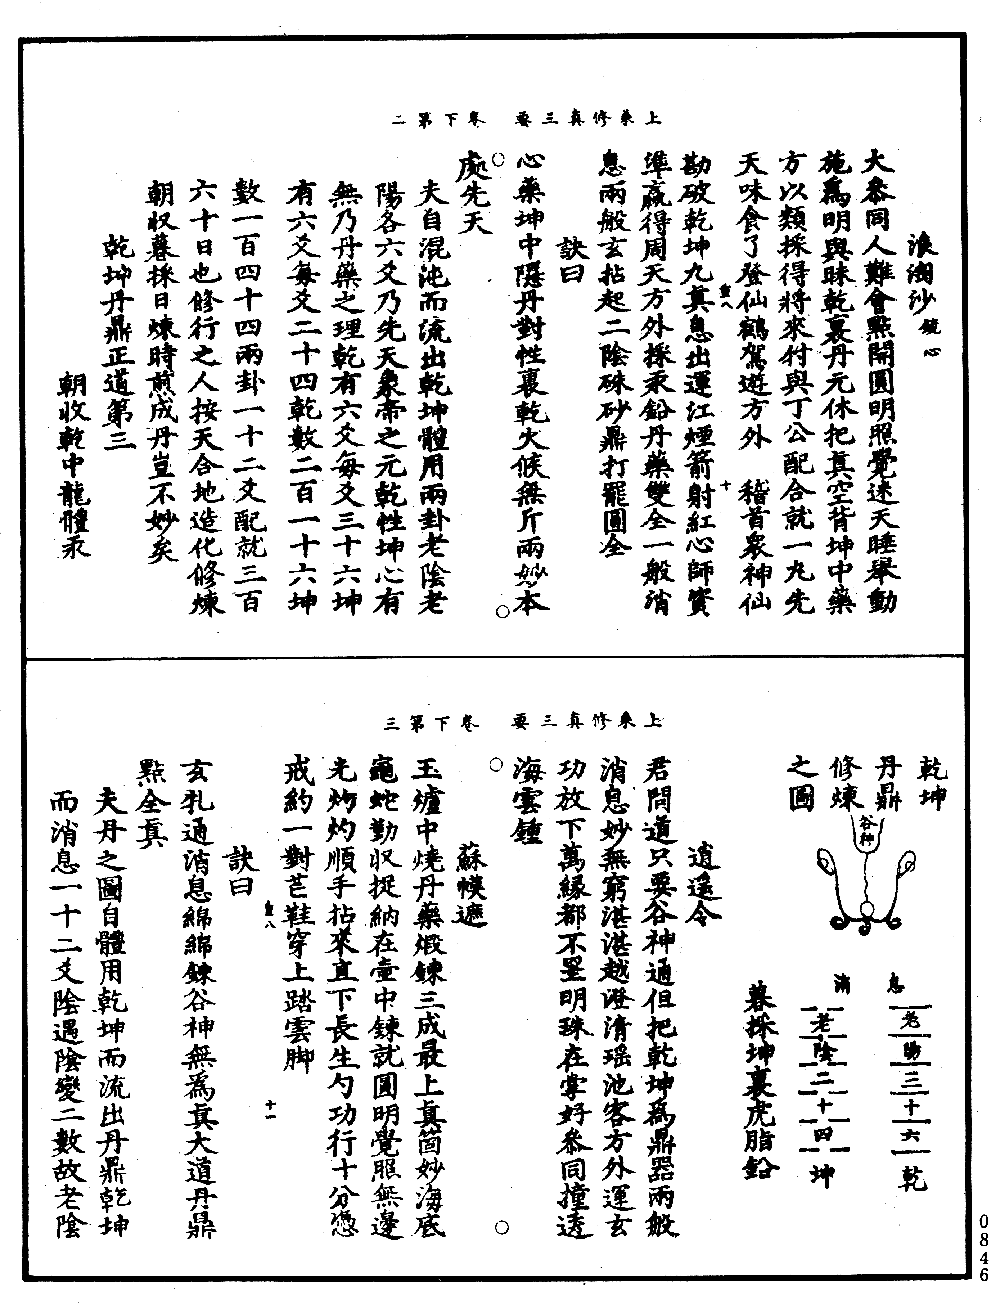 上乘修真三要　卷下第二
浪淘沙　鏡心
大叅同人難會點開圓明照覺迷天睡舉動
施爲明與昧乾裏丹元休把真空背坤中藥
方以類採得將來付與丁公配合就一丸先
天味食了登仙鶴駕遊方外　稽首衆神仙
勘破乾坤九真息出運江煙箭射紅心師資
準贏得周天方外採汞鉛丹藥雙全一般消
息兩般玄拈起二陰硃砂鼎打罷圓全
訣曰
心藥坤中隱丹對性裏乾火候無斤兩妙本
處先天
夫自混沌而流出乾坤體用兩卦老陰老
陽各六爻乃先天象帝之元乾性坤心有
無乃丹藥之理乾有六爻每爻三十六坤
有六爻每爻二十四乾數二百一十六坤
數一百四十四兩卦一十二爻配就三百
六十日也修行之人按天合地造化修煉
朝收暮採日煉時煎成丹豈不妙矣
乾坤丹鼎正道第三
朝收乾中龍體汞
上乘修真三要　卷下第三
乾坤
丹鼎
修煉
之圖
谷神
息
老陽三十六乾
消
老陰二十四坤
暮採坤裏虎脂鉛
逍遙令
君問道只要谷神通但把乾坤爲鼎器兩般
消息妙無窮湛湛越澄清瑶池客方外運玄
功放下萬緣都不罣明珠在掌好叅同撞透
海雲鍾
蘇幙遮
玉爐中燒丹藥煅鍊三成最上真箇妙海底
龜蛇勤收捉納在壺中鍊就圓明覺照無邊
光灼灼順手拈來直下長生勺功行十分憑
戒約一對芒鞋穿上踏雲脚
訣曰
玄乳通消息綿綿鍊谷神無爲真大道丹鼎
點全真
夫丹之圖自體用乾坤而流出丹鼎乾坤
而消息一十二爻陰遇陰變二數故老陰
十
十一
0846